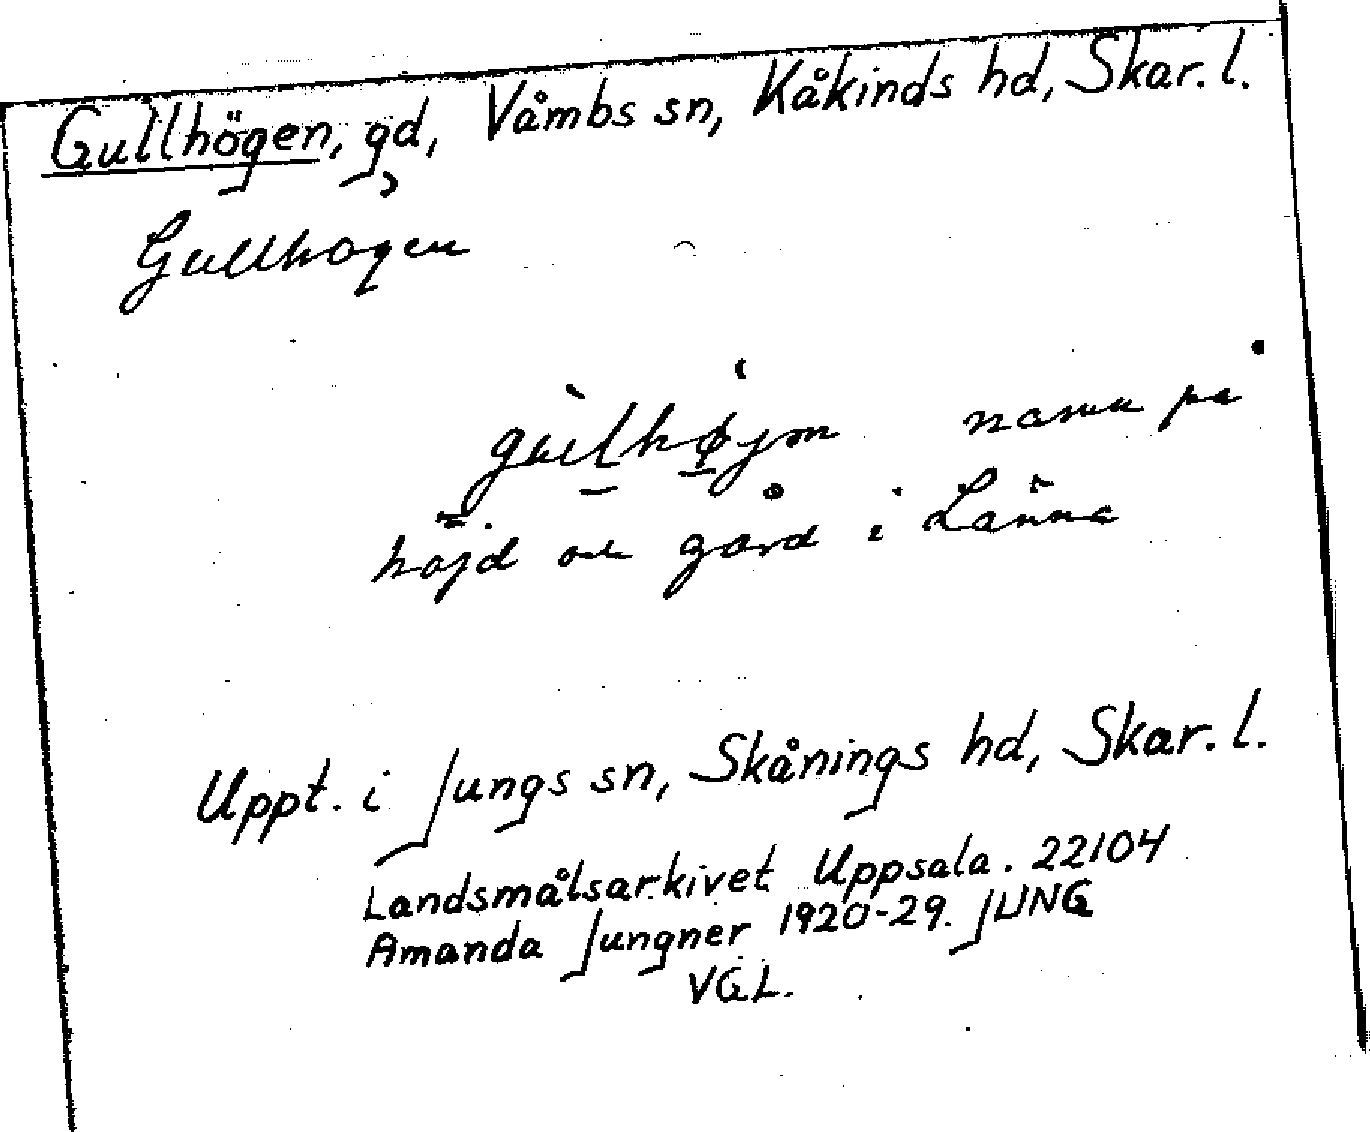 Gullhögen, gd, Våmbs sn, Kåkinds hd, Skar. l.
Gullhögen
gullhøjm namn på
höjd och gård i Länna
Uppt. i Jungs sn, Skånings hd, Skar. l.
Landsmålsarkivet Uppsala. 22104
Amanda Jungner 1920-29. JUNG
VGL.